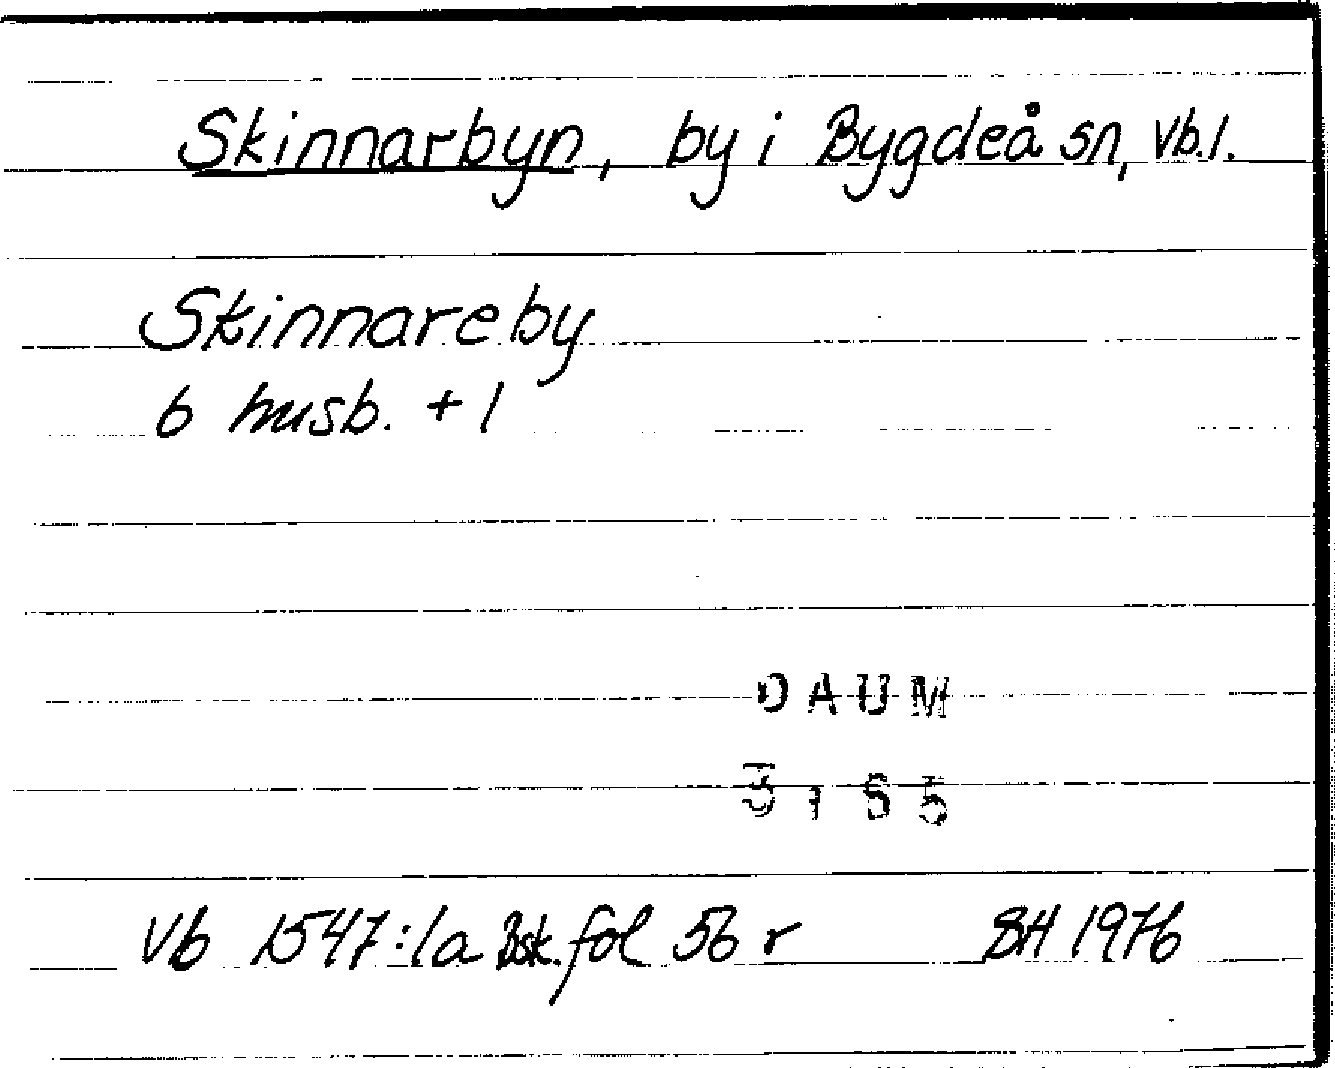 Skinnarbyn, by i Bygdeå sn, Vb.l.
Skinnareby
6 husb. + 1
DAUM
3165
Vb 1547:1a Bsk. fol 56 r BH 1976